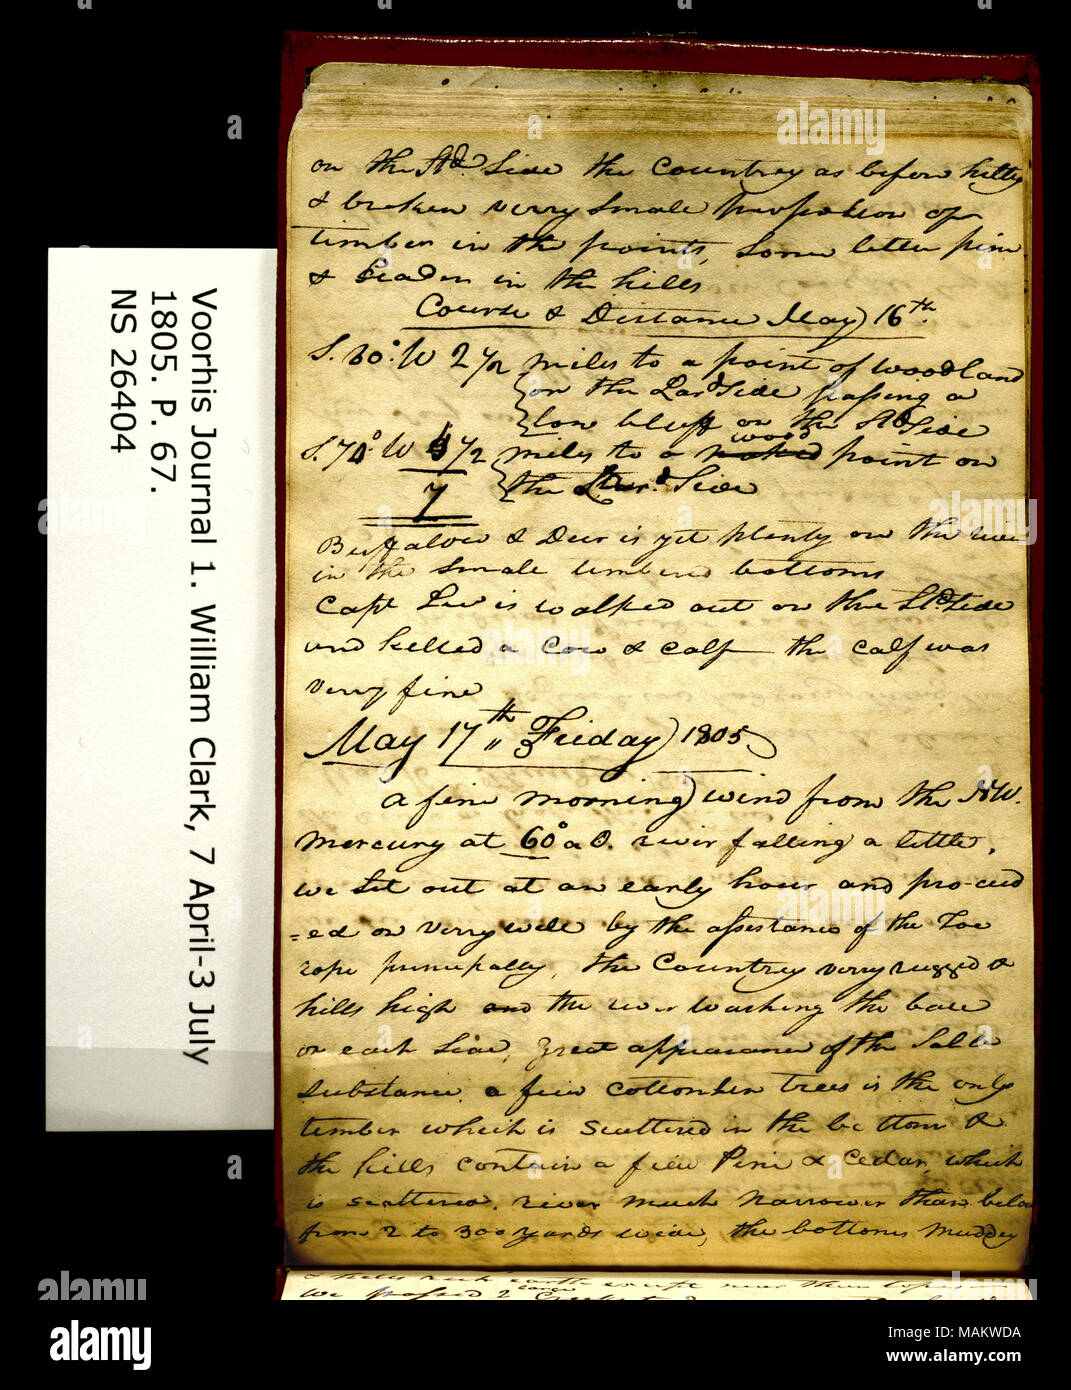 Voorhis Journal 1. William Clark, 7 April-3 July
1805. P. 67.
NS 26404
on the Std. Side the Countrey as before hilley
& broken verry Small proposion of
timber in the points, Some littlе pine
& Seader in the hills
Course & Distance May 16th.
S. 30° W 2 1/2 miles to a point of woodland
on the Lard Side passing a
low bluff on the Std Side
S. 70° W 4 1/2 miles to a wood point on
7 the Stard. Side
Buffalow & Deer is yet plenty on the river
in the Small timbered bottoms
Capt Lewis walked out on the Std Side
and killed a Cow & Calf the calf was
verry fine
May 17th Friday 1805
a fine morning wind from the NW.
Mercury at 60° a 0. river falling a little.
we Set out at an early hour and pro-ceed
=ed on verry well by the assistance of the Toe
rope principally, the Countrey verry rugged &
hills high and the river washing the base
on each Side, Great appearance of the Salt
Substance. a fiew Cotton trees is the only
timber which is Scattered in the bottoms &
the hills contain a fiew Pine & Cedar, which
is scattered. river much narrower than below
from 2 to 300 yards wide, the bottoms muddey
& hills rich earth except near their tops
We passed 2 large Creeks
alamy
Image ID: MAKWDA
www.alamy.com